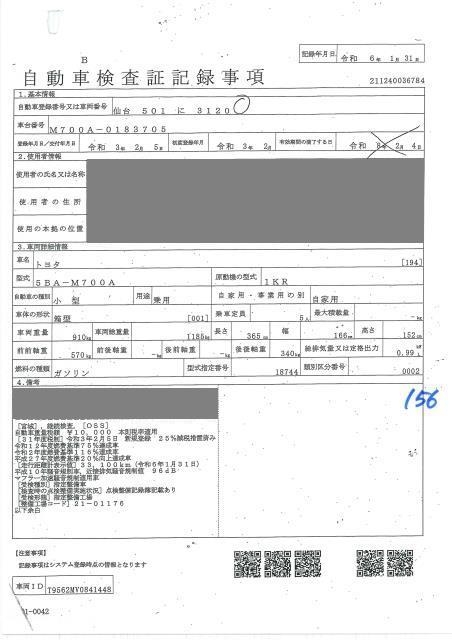 B
記録年月日 令和 6年 1月 31日
自動車検査証記録事項
211240036784
1.基本情報
自動車登録番号又は車両番号 仙台 501 に 3120
車台番号 M700A-0183705
登録年月日/交付年月日 令和 3年 2月 5日 初度登録年月 令和 3年 2月 有効期間の満了する日 令和 8年 2月 4日
2.使用者情報
使用者の氏名又は名称
使用者の住所
使用の本拠の位置
3.車両詳細情報
車名 トヨタ [194]
型式 5BA-M700A 原動機の型式 1KR
自動車の種別 小型 用途 乗用 自家用・事業用の別 自家用
車体の形状 箱型 [001] 乗車定員 5人 最大積載量 -kg
車両重量 910kg 車両総重量 1185kg 長さ 365cm 幅 166cm 高さ 152cm
前前軸重 570kg 前後軸重 -kg 後前軸重 -kg 後後軸重 340kg 総排気量又は定格出力 0.99L
燃料の種類 ガソリン 型式指定番号 18744 類別区分番号 0002
4.備考
156
[宮城], 継続検査, [OSS]
自動車重量税額 ¥10,000 本則税率適用
[31年度税制] 令和3年2月5日 新規登録 25%減税措置済み
令和12年度燃費基準75%達車
令和2年度燃費基準116%達成車
平成27年度燃費基準20%向上達成車
[走行距離計表示値] 33,100km (令和6年1月31日)
平成10年騒音規制車, 近接排気騒音規制値 96dB
マフラー加速騒音規制適用車
[受検種別] 指定整備車
[検査時の点検整備実施状況] 点検整備記録簿記載あり
[受検形態] 指定整備工場
[整備工場コード] 21-01176
以下余白
【注意事項】
記録事項はシステム登録時点の情報となります
車両ID T9562MV0841448
01-0042